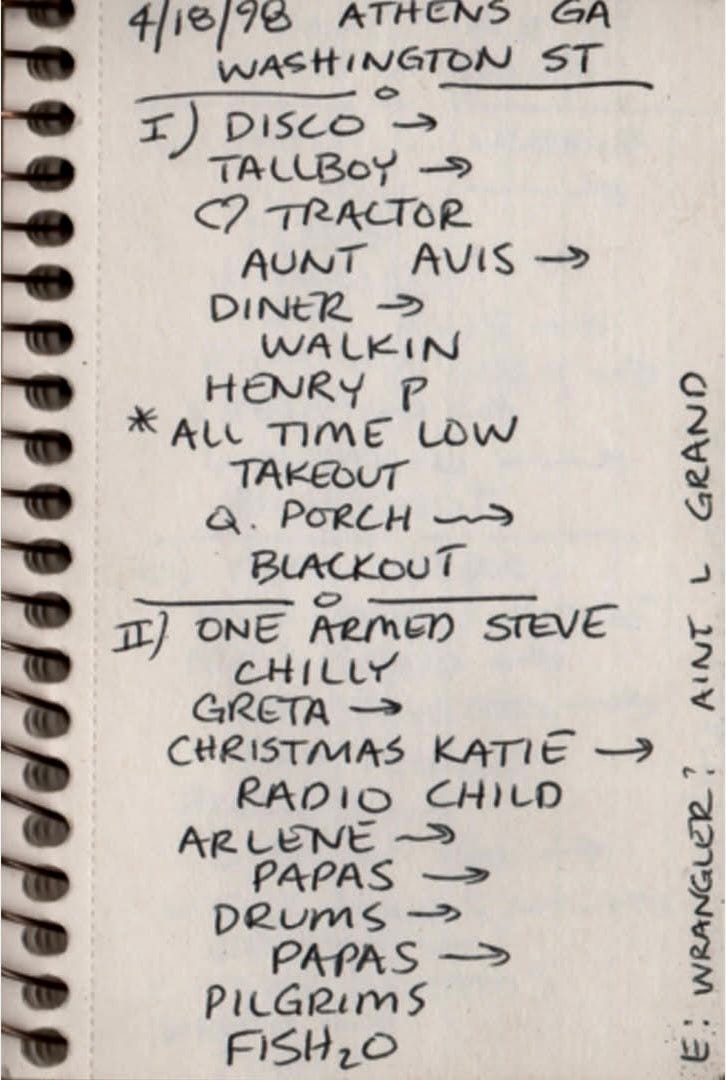 4/18/98 ATHENS GA
WASHINGTON ST
I) DISCO →
TALLBOY →
♡ TRACTOR
AUNT AVIS →
DINER →
WALKIN
HENRY P
* ALL TIME LOW
TAKEOUT
Q. PORCH →
BLACKOUT
II) ONE ARMED STEVE
CHILLY
GRETA →
CHRISTMAS KATIE →
RADIO CHILD
ARLENE →
PAPAS →
DRUMS →
PAPAS →
PILGRIMS
FISH₂O
E: WRANGLER? AINT L GRAND